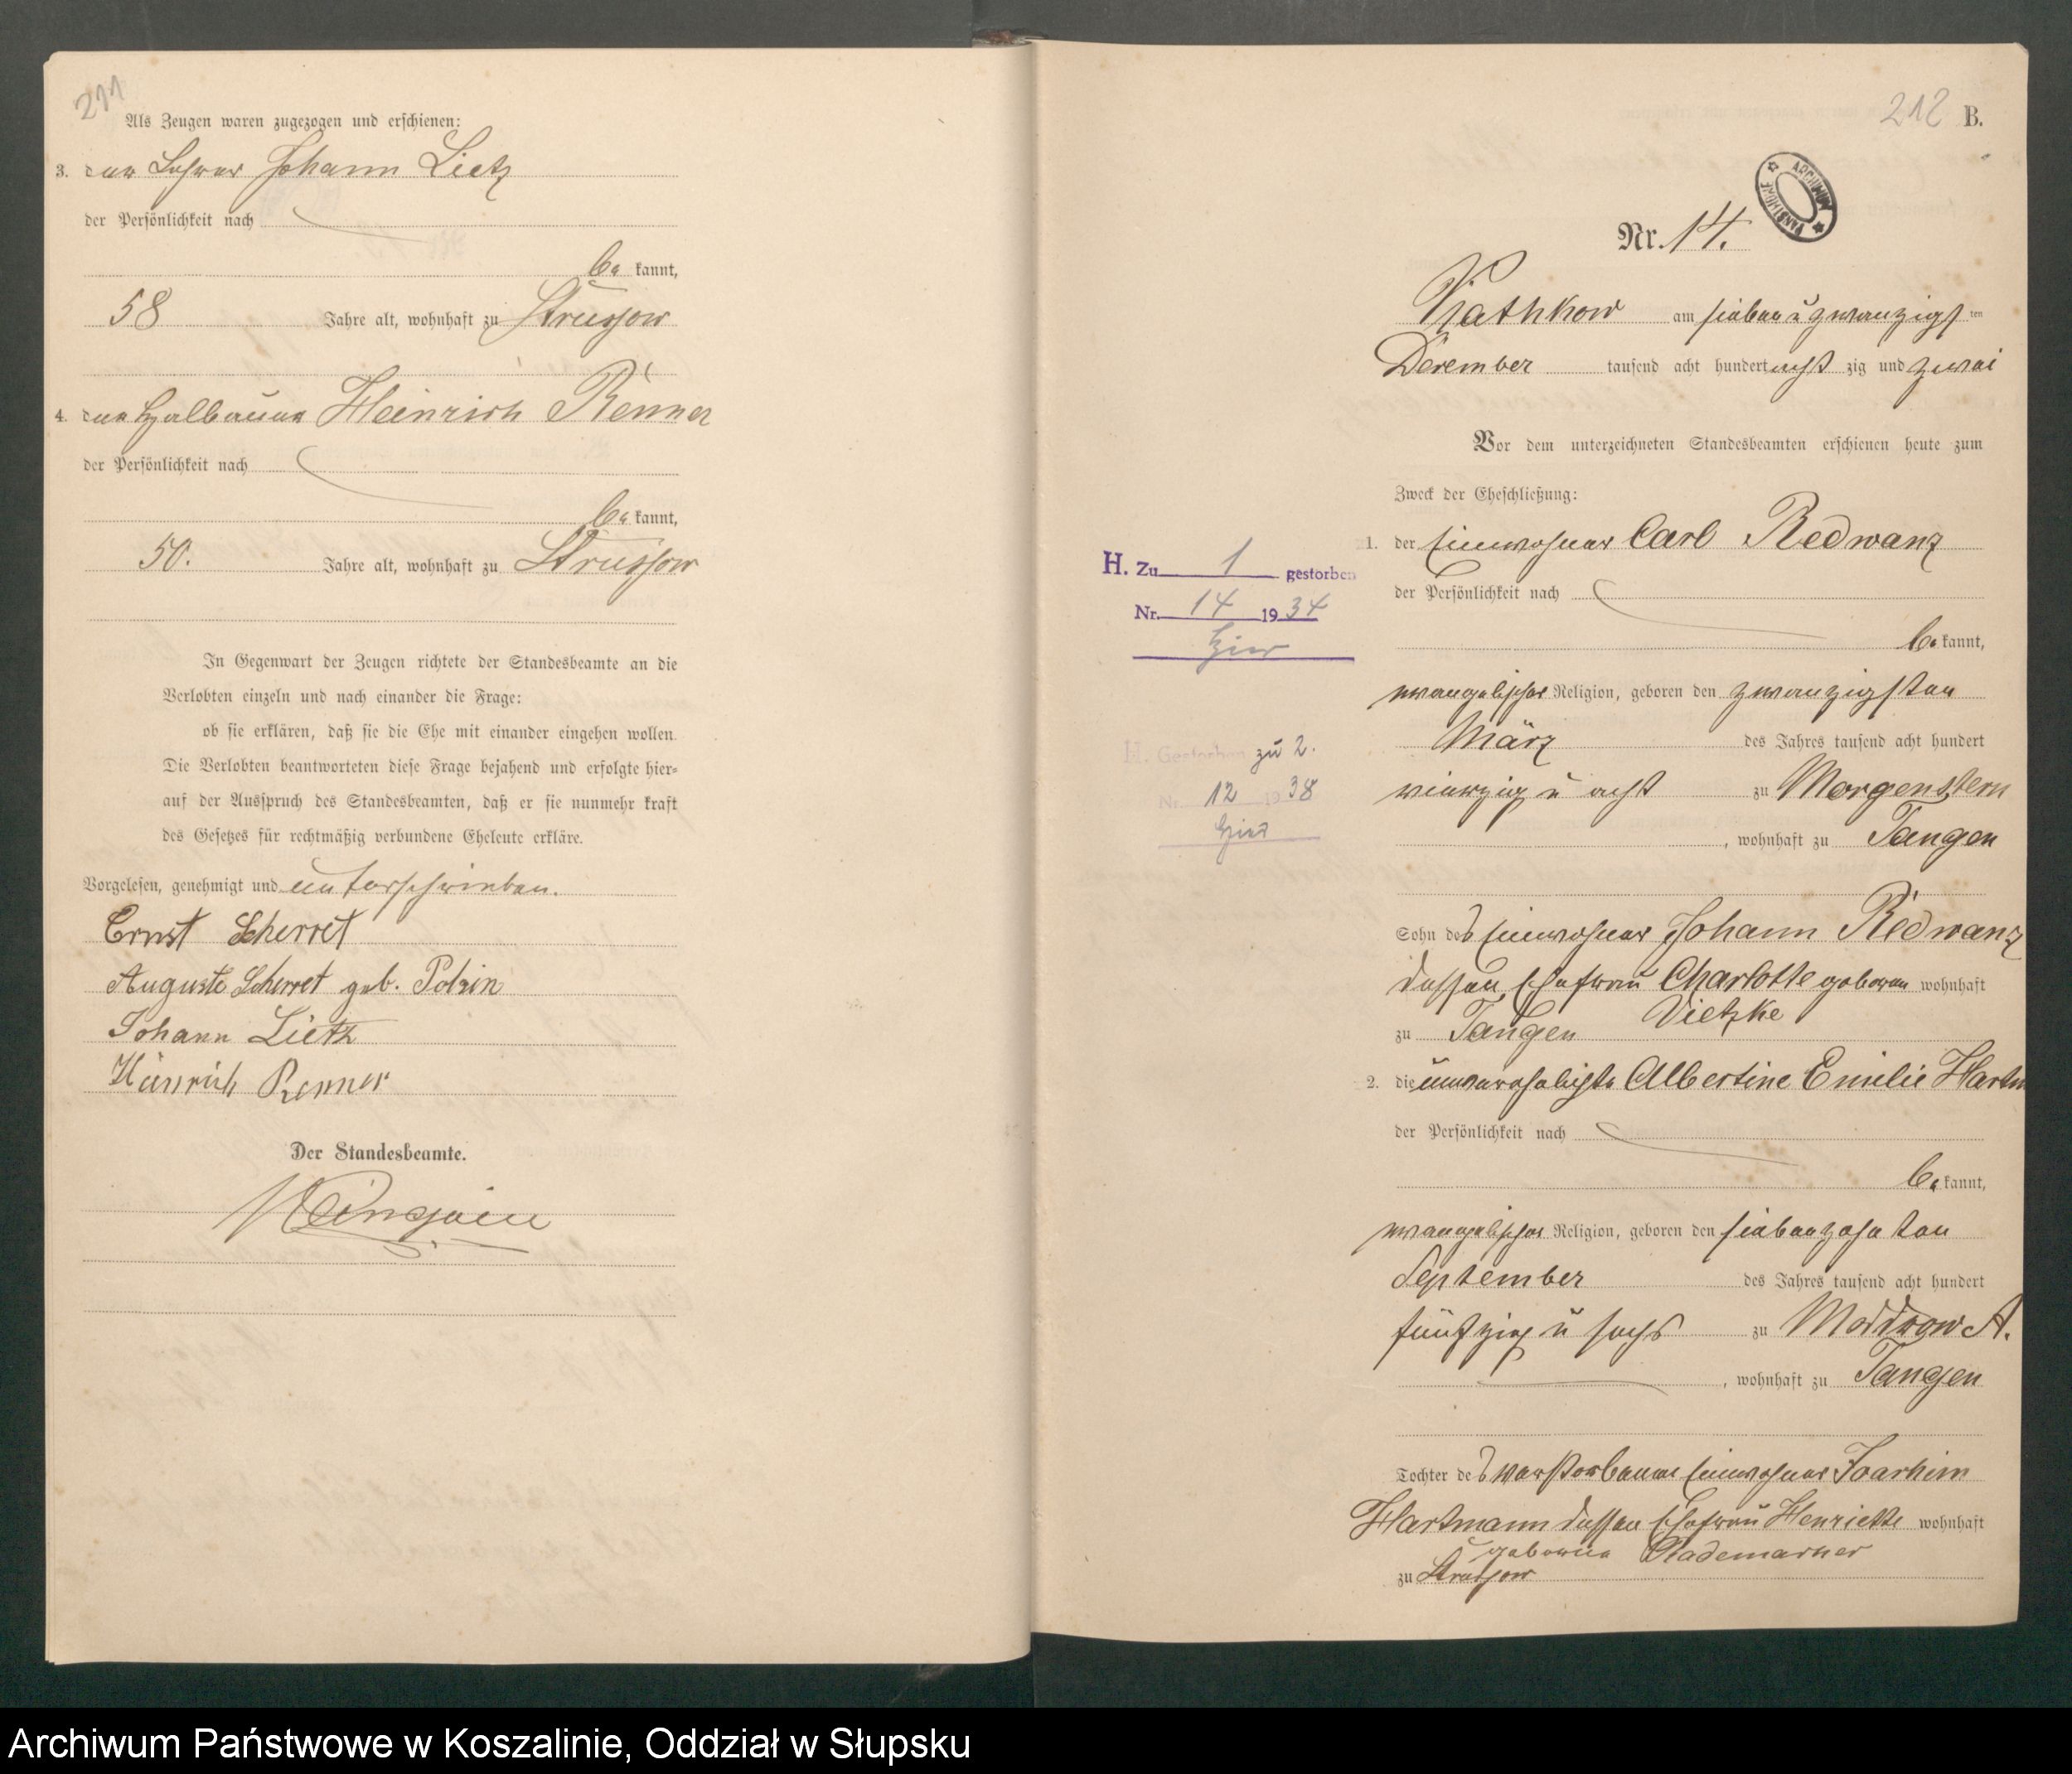 211
Als Zeugen waren zugezogen und erschienen:
3. der Lehrer Johann Lietz
der Persönlichkeit nach
be kannt,
58 Jahre alt, wohnhaft zu Strussow
4. der Halbauer Heinrich Renner
der Persönlichkeit nach
be kannt,
50. Jahre alt, wohnhaft zu Strussow
In Gegenwart der Zeugen richtete der Standesbeamte an die
Verlobten einzeln und nach einander die Frage:
ob sie erklären, daß sie die Ehe mit einander eingehen wollen.
Die Verlobten beantworteten diese Frage bejahend und erfolgte hier-
auf der Ausspruch des Standesbeamten, daß er sie nunmehr kraft
des Gesetzes für rechtmäßig verbundene Eheleute erkläre.
Vorgelesen, genehmigt und unterschrieben.
Ernst Scherret
Auguste Scherret geb. Polzin
Johann Lietz
Heinrich Renner
Der Standesbeamte.
212 B.
ARCHIWUM PAŃSTWOWE
Nr. 14.
Rathkow am sieben u zwanzigs ten
Dezember tausend acht hundert acht zig und zwei
Vor dem unterzeichneten Standesbeamten erschienen heute zum
Zweck der Eheschließung:
1. der Einwohner Carl Redwanz
der Persönlichkeit nach
be kannt,
evangelischer Religion, geboren den zwanzigsten
März des Jahres tausend acht hundert
vierzig u acht zu Morgenstern
, wohnhaft zu Tangen
Sohn des Einwohner Johann Redwanz
dessen Ehefrau Charlotte geboren wohnhaft
Vietzke
zu Tangen
2. die unverehelichte Albertine Emilie Hartm
der Persönlichkeit nach
be kannt,
evangelischer Religion, geboren den siebenzehnten
September des Jahres tausend acht hundert
fünfzig u sechs zu Moddrow A.
, wohnhaft zu Tangen
Tochter des verstorbenen Einwohner Joachim
Hartmann dessen Ehefrau Henriette wohnhaft
geborene Rademacher
zu Strussow
H. Zu 1 gestorben
Nr. 14 1934
hier
H. Gestorben zu 2.
Nr. 12 1938
hier
Archiwum Państwowe w Koszalinie, Oddział w Słupsku